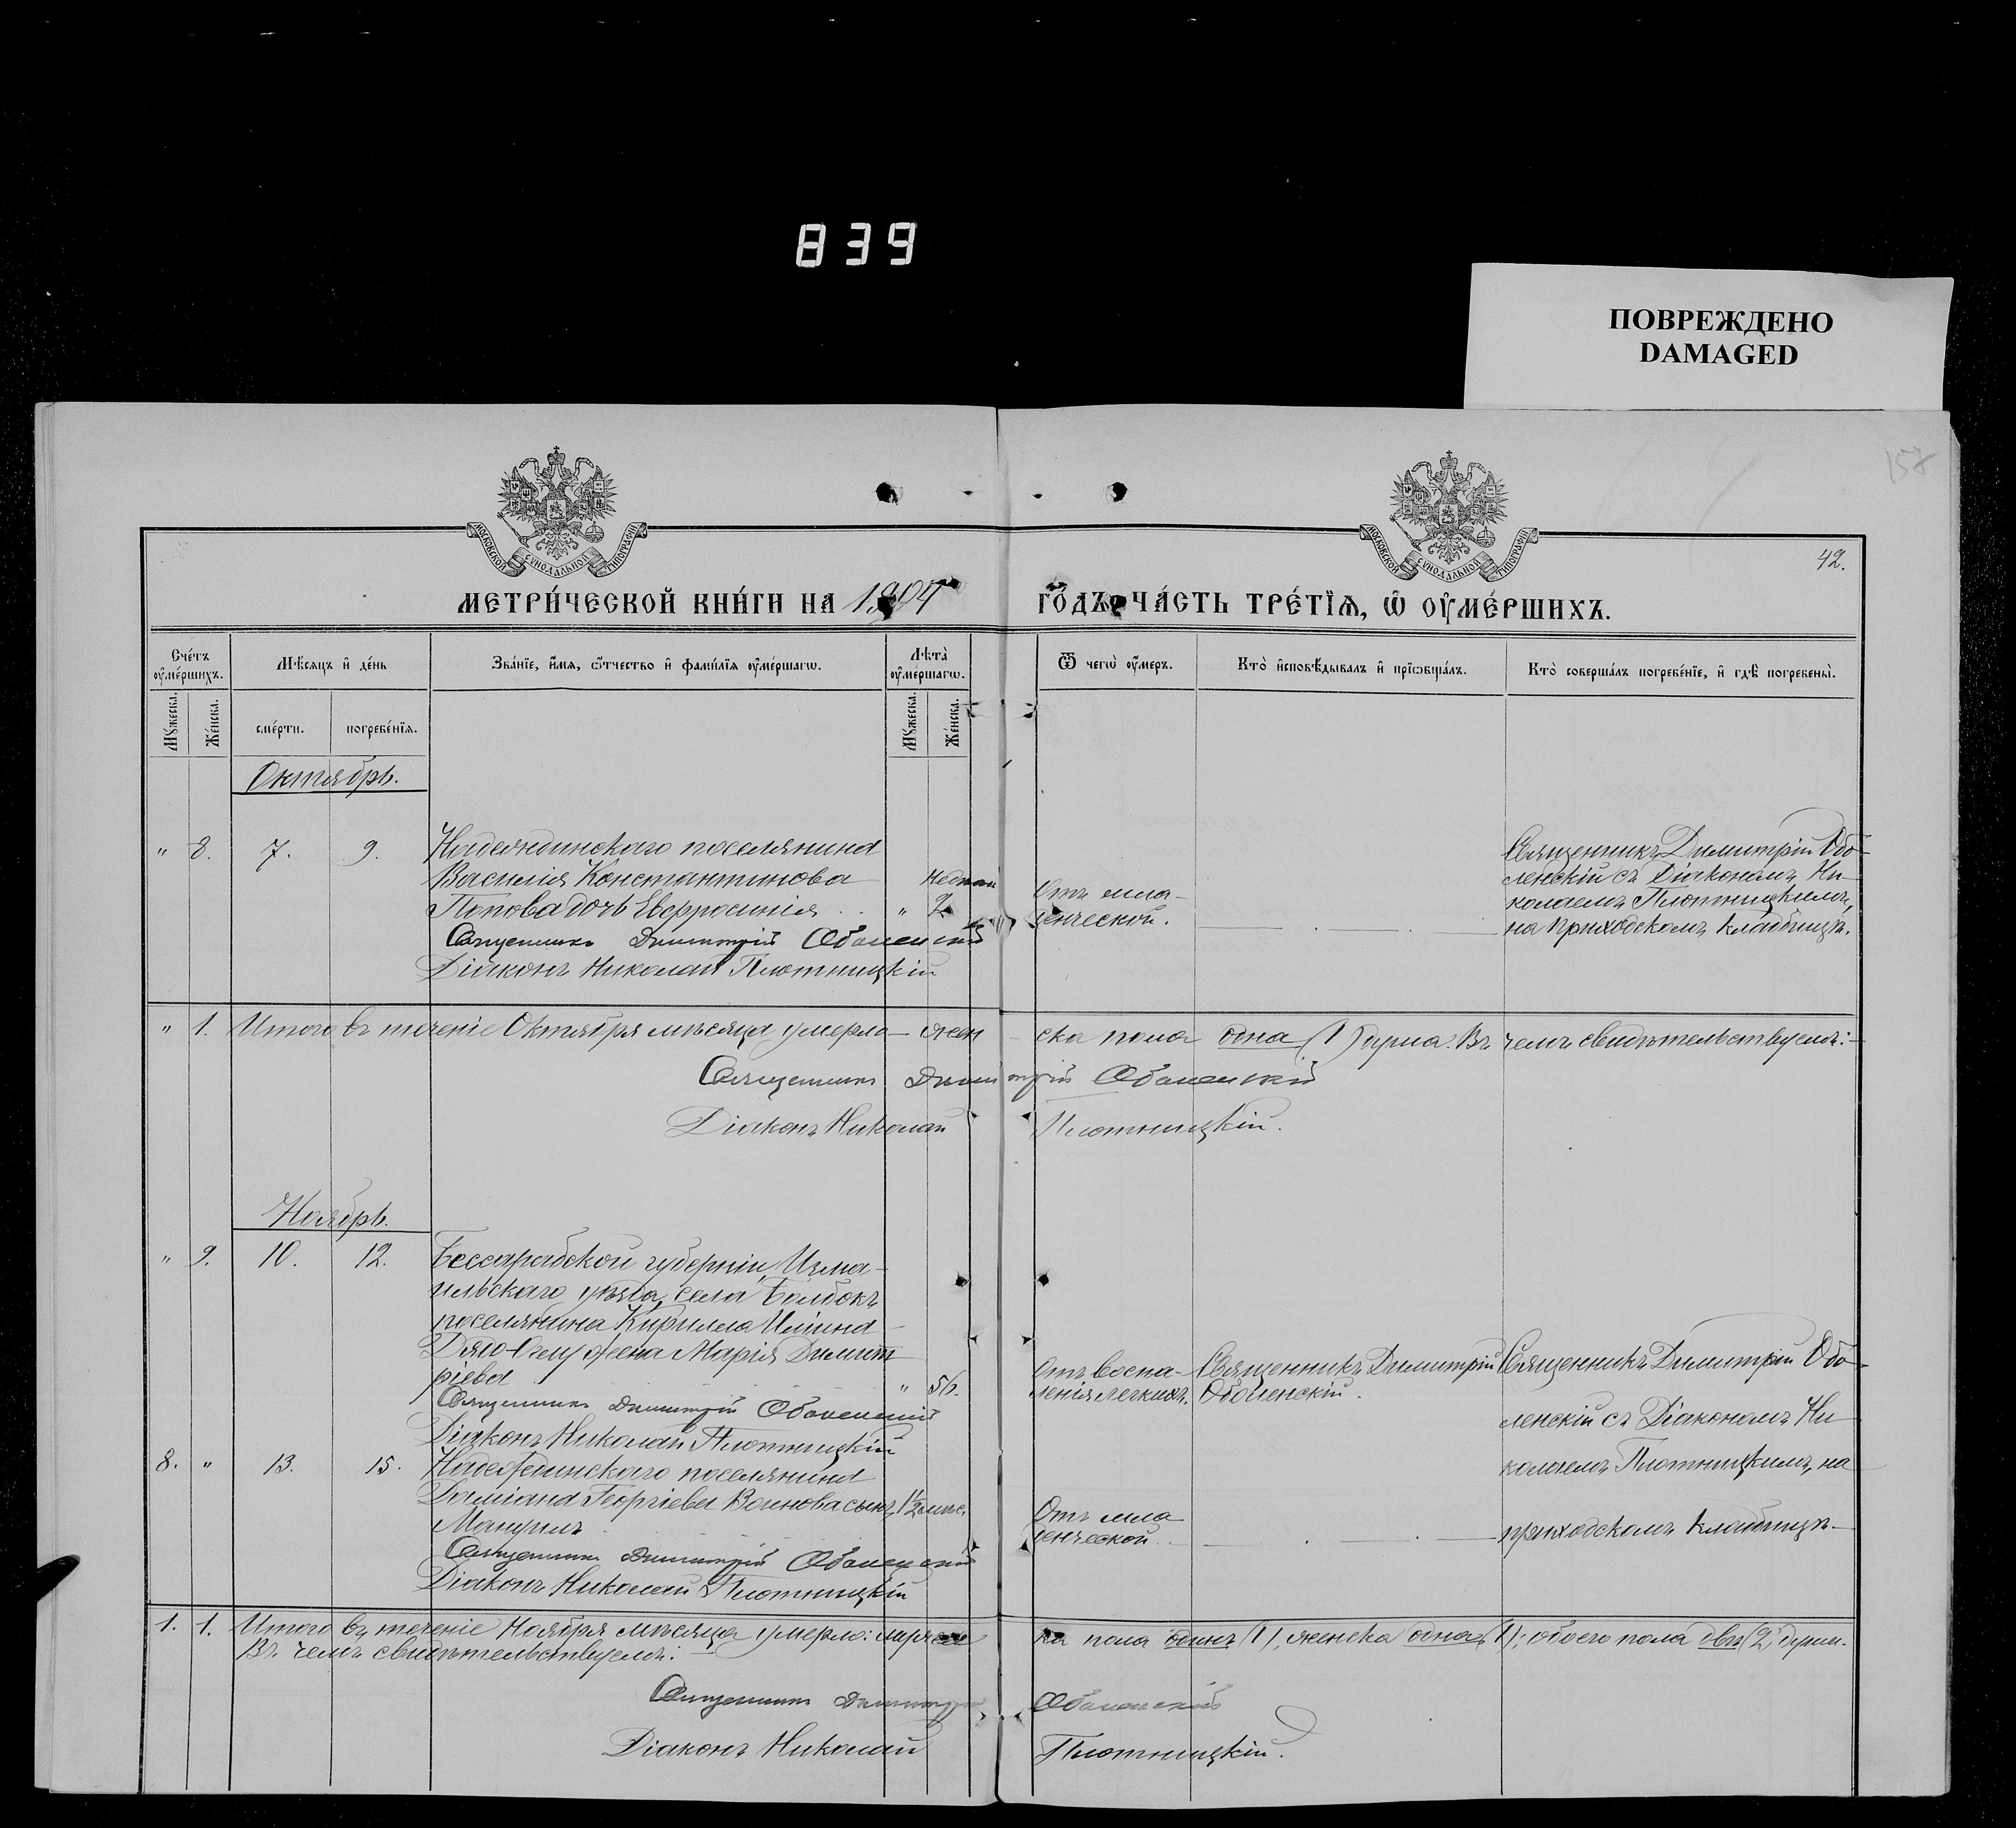 839
ПОВРЕЖДЕНО
DAMAGED
158
42.
МОСКОВСКОЙ СѴНОДАЛЬНОЙ ТИПОГРАФІИ
МОСКОВСКОЙ СѴНОДАЛЬНОЙ ТИПОГРАФІИ
МЕТРИ́ЧЕСКОЙ КНИ́ГИ НА 1904 ГО́ДЪ ЧА́СТЬ ТРЕ́ТІѦ, Ѡ ОУМЕ́РШИХЪ.
Сче́тъ оуме́ршихъ.
Мѣ́сѧцъ и де́нь
Зва́нїе, и́мѧ, ѻ́тчество и фами́лїѧ оуме́ршагѡ.
Лѣта̀ оуме́ршагѡ.
Ѿ чегѡ̀ оу́меръ.
Кто̀ и҆сповѣ́дывалъ и прїѡбща́лъ.
Кто̀ соверша́лъ погребе́нїе, и гдѣ̀ погребены̀.
Мꙋжеска.
Же́нска.
сме́рти.
погребе́нїѧ.
Мꙋжеска.
Же́нска.
Октябрь.
" 8. 7. 9. Надеждинскаго поселянина
Василія Константинова
Попова дочь Евфросинія . . " 2
Священникъ Димитрій Оболенскій
Діаконъ Николай Плотницкій
Отъ мла-
денческой.
Священникъ Димитрій Обо-
ленскій съ Діакономъ Ни-
колаемъ Плотницкимъ,
на приходскомъ кладбищѣ.
" 1. Итого въ теченіе Октября мѣсяца умерло женска пола одна (1) душа. Въ чемъ свидѣтельствуемъ:
Священникъ Димитрій Оболенскій
Діаконъ Николай Плотницкій.
Ноябрь.
" 9. 10. 12. Бессарабской губерніи, Изма-
ильскаго уѣзда, села Болбокъ
поселянина Кирилла Ильина
жена Марія Димит-
ріева " 56.
Священникъ Димитрій Оболенскій
Діаконъ Николай Плотницкій
Отъ воспа-
ленія легкихъ.
Священникъ Димитрій
Оболенскій.
Священникъ Димитрій Обо-
ленскій съ Діакономъ Ни-
колаемъ Плотницкимъ, на
приходскомъ кладбищѣ.
8. " 13. 15. Надеждинскаго поселянина
Даміана Георгіева Воинова сынъ 1½ мѣс.
Мануилъ
Священникъ Димитрій Оболенскій
Діаконъ Николай Плотницкій
Отъ мла
денческой.
1. 1. Итого въ теченіе Ноября мѣсяца умерло: мужеска пола одинъ (1), женска одна (1); обоего пола двѣ (2) души.
Въ чемъ свидѣтельствуемъ:
Священникъ Димитрій Оболенскій
Діаконъ Николай Плотницкій.